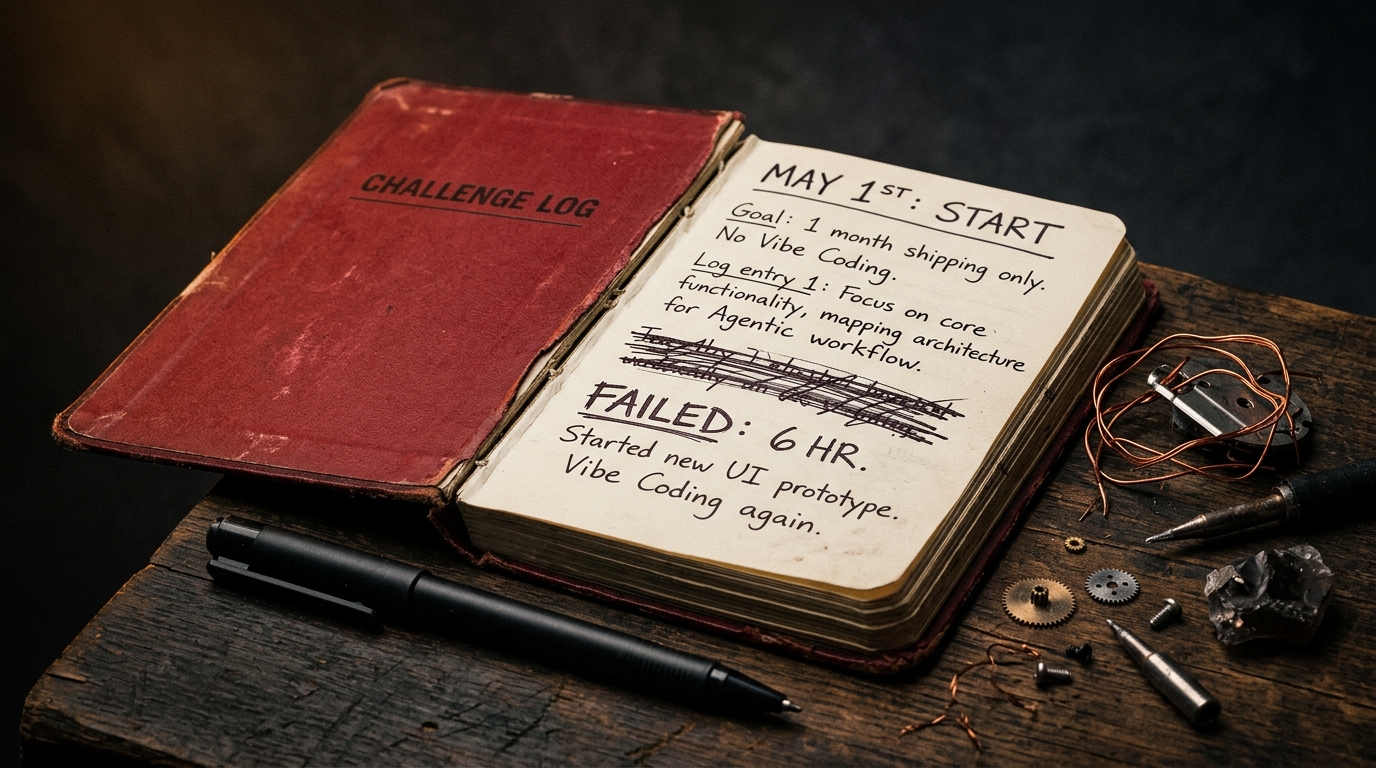 CHALLENGE LOG
MAY 1ST: START
Goal: 1 month shipping only.
No Vibe Coding.
Log entry 1: Focus on core
functionality, mapping architecture
for Agentic workflow.
FAILED: 6 HR.
Started new UI prototype.
Vibe Coding again.